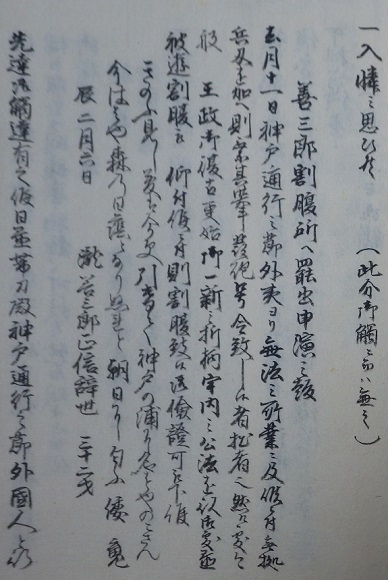 一入憐ミ思ひ候 (此分御触ニ而ハ無之)
善三郎割腹所へ罷出申演之趣
去月十一日神戸通行之節外夷ヨリ無法之所業ニ及候ニ付無拠
兵刃を加へ則其挙発砲号令致し候者拙者ニ然ル処今
般 王政御復古更始御一新之折柄宇内之公法を以御処置
被遊割腹被 仰付候ニ付則割腹致候間倹證可被下候
きのふ見し夢は今更引かへて神戸の浦に名をやのこさん
今ははや森の日蔭となりぬれと朝日に匂ふ倭魂
辰二月六日 瀧善三郎正信辞世 三十二才
先達而御触達有之候日並帯刀殿神戸通行之節外国人と